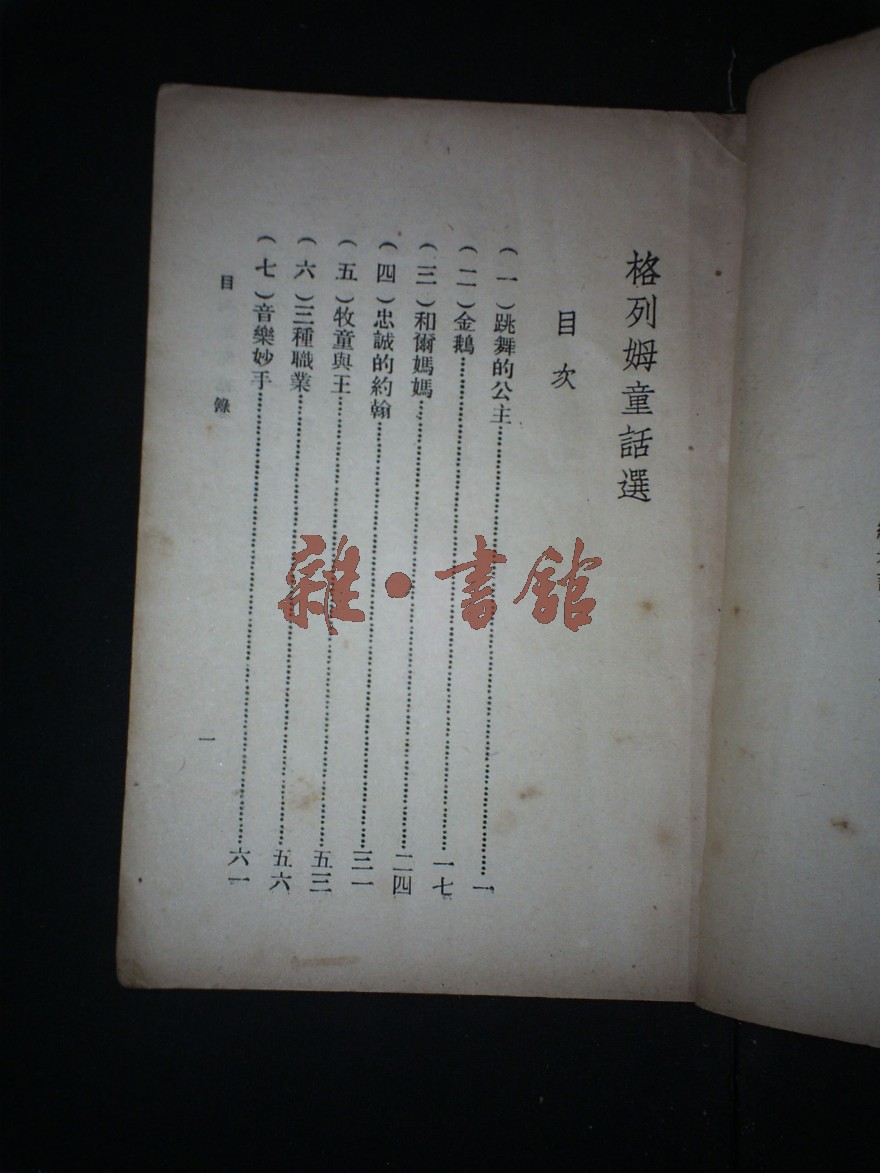 格列姆童話選
目次
（一）跳舞的公主……一
（二）金鵝……一七
（三）和爾媽媽……二四
（四）忠誠的約翰……三一
（五）牧童與王……五三
（六）三種職業……五六
（七）音樂妙手……六一
目錄
一
雜·書館